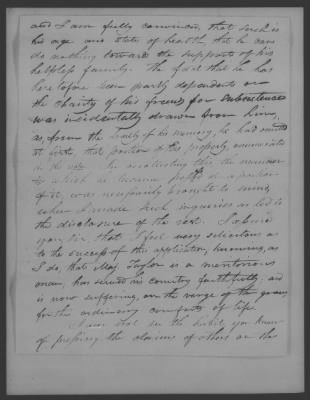 and I am fully convinced, that such is
his age and state of health, that he can
do nothing toward the support of his
helpless family. The fact that he has
here before been partly dependent on
the charity of his friends for subsistence
was incidentally drawn from him,
as, from the frailty of his memory, he had omitted
at first, that portion of his property, enumerated
in the note. In recollecting this the manner
in which he became possessed of a portion
of it, was necessarily brought to mind,
when I made such inquiries as led to
the disclosure of the rest. I assure
you, Sir, that I feel very solicitous as
to the success of this application, knowing, as
I do, that Maj. Taylor is a meritorious
man, has served his country faithfully, and
is now suffering, on the verge of the grave,
for the ordinary comforts of life.
I am not in the habit, you know,
of pressing the claims of others on the